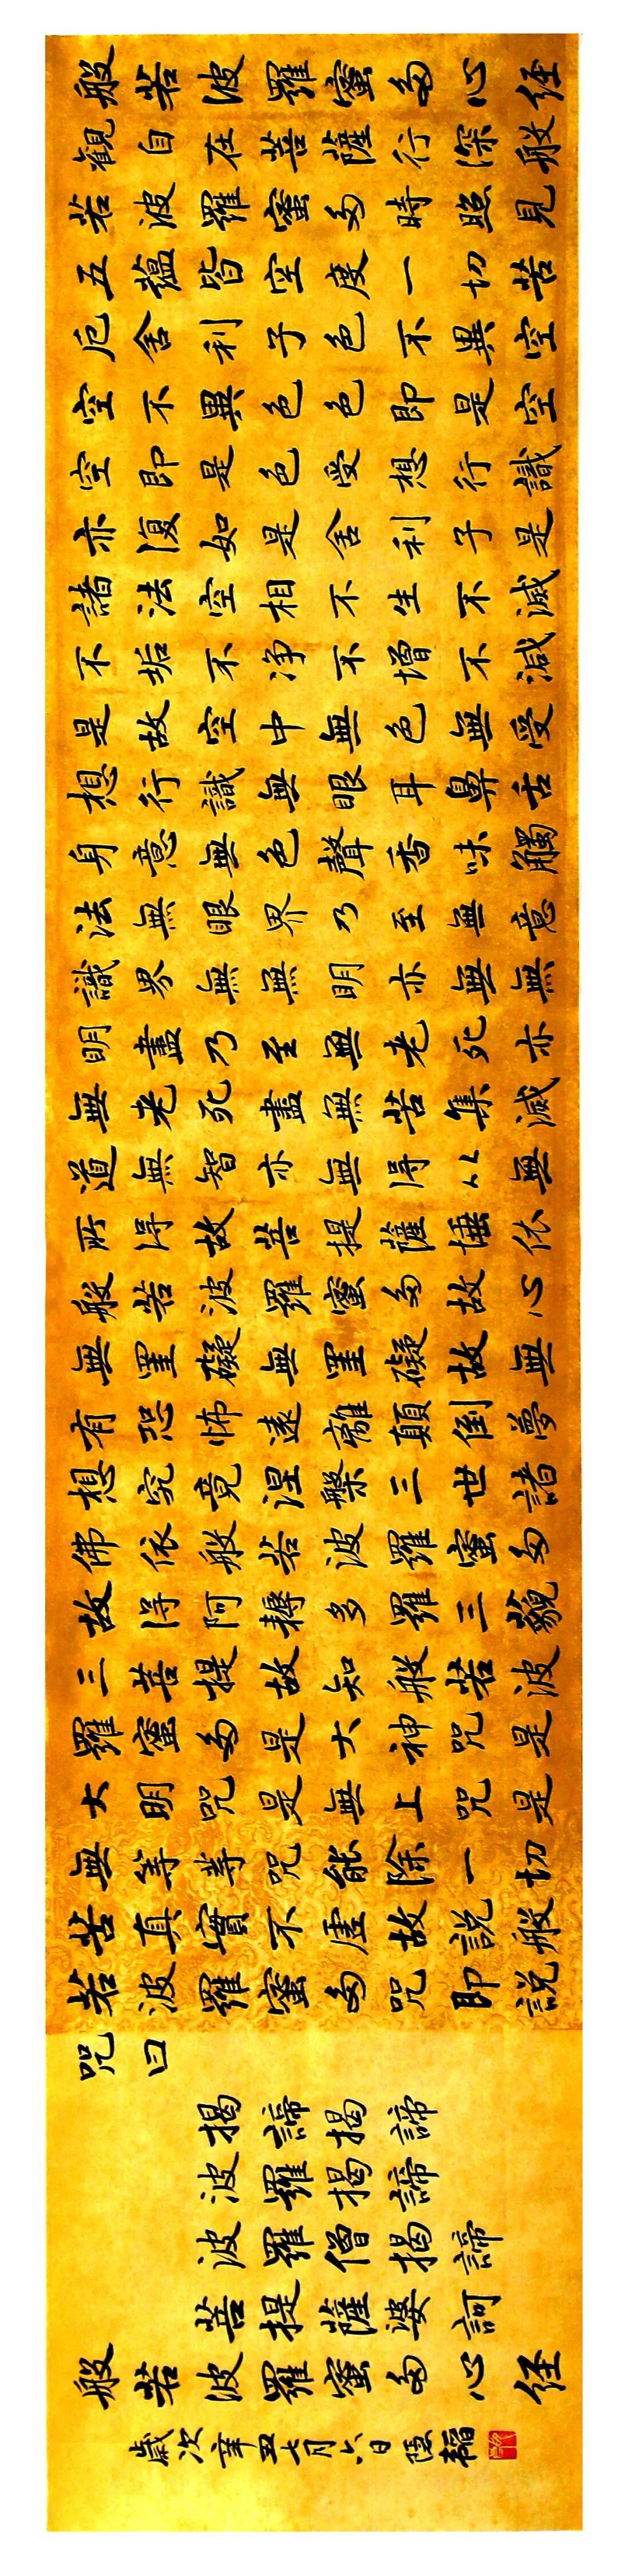 般若波羅蜜多心经
觀自在菩薩行深般
若波羅蜜多時照見
五蘊皆空度一切苦
厄舍利子色不異空
空不異色色即是空
空即是色受想行識
亦復如是舍利子是
諸法空相不生不滅
不垢不净不增不減
是故空中無色無受
想行識無眼耳鼻舌
身意無色聲香味觸
法無眼界乃至無意
識界無無明亦無無
明盡乃至無老死亦
無老死盡無苦集滅
道無智亦無得以無
所得故菩提薩埵依
般若波羅蜜多故心
無罣礙無罣礙故無
有恐怖遠離顛倒夢
想究竟涅槃三世諸
佛依般若波羅蜜多
故得阿耨多羅三藐
三菩提故知般若波
羅蜜多是大神咒是
大明咒是無上咒是
無等等咒能除一切
苦真實不虛故説般
若波羅蜜多咒即説
咒曰
揭諦揭諦
波羅揭諦
波羅僧揭諦
菩提薩婆訶
般若波羅蜜多心经
歲次辛丑七月六日